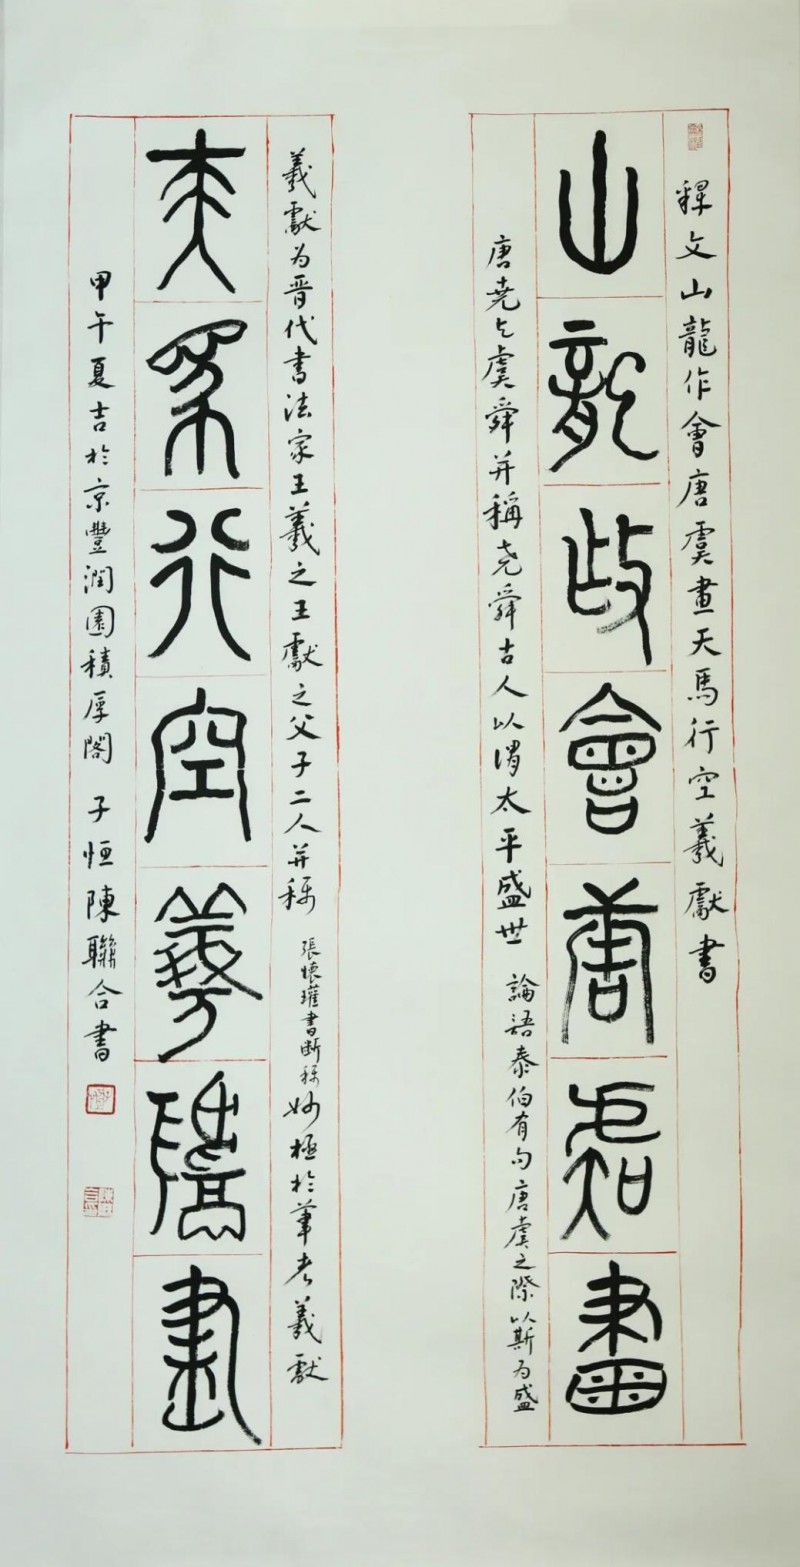 釋文山龍作會唐虞畫天馬行空羲獻書
山龍作會唐虞畫
唐堯与虞舜并稱堯舜古人以謂太平盛世 論語泰伯有句唐虞之際以斯為盛
羲獻为晋代書法家王羲之王獻之父子二人并称 張懷瓘書断称妙極於筆者羲獻
天馬行空羲獻書
甲午夏吉於京豐潤園積厚閣 子恒陳聯合書